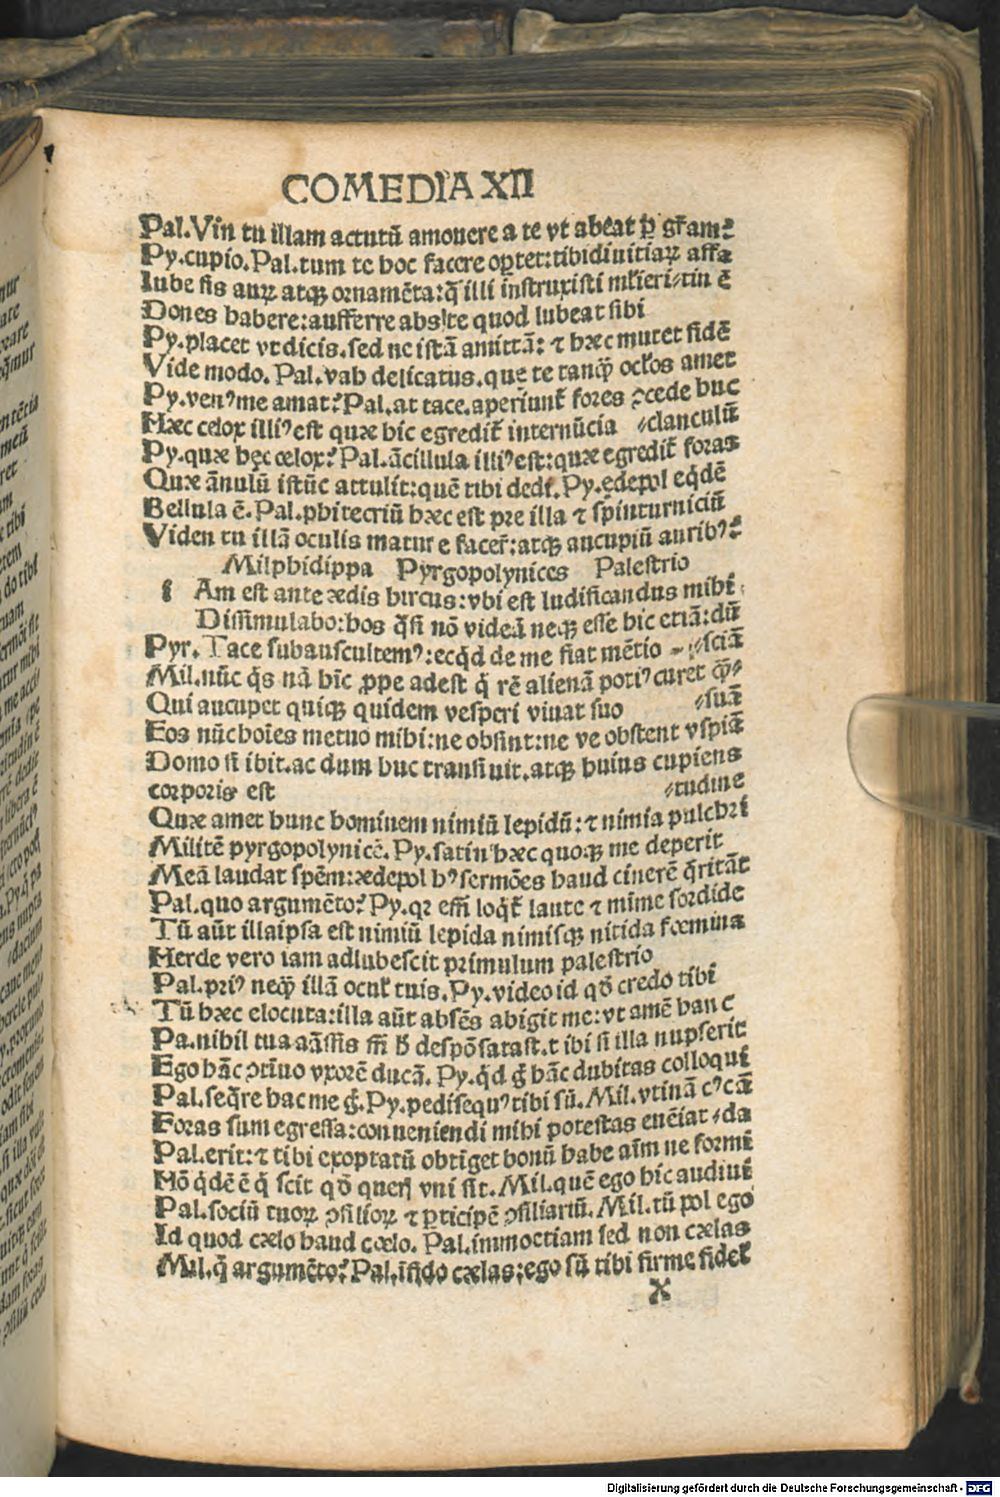 COMEDIA XII
Pal. Vin tu illam actutū amouere a te vt abeat p̱ gr̄am?
Py. cupio. Pal. tum te hoc facere oꝑtet: tibi diuitiaꝝ affa
Iube sis auꝝ atqꝫ ornamēta: q̄ illi instruxisti ml̓ieri ⸗tin ē
Dones habere: aufferre abs te quod lubeat sibi
Py. placet vt dicis. sed ne istā amittā: ⁊ hæc mutet fidē
Vide modo. Pal. vah delicatus. que te tanqꝫ̄ ocl̓os amet
Py. venꝰ me amat? Pal. at tace. aperiunt̄ fores ꝯcede huc
Hæc celox illiꝰ est quæ hic egredit̄ internūcia ⸗clanculū
Py. quæ hęc cœlox? Pal. ācillula illiꝰ est: quæ egredit̄ foras
Quæ ānulū istūc attulit: quē tibi dedi. Py. ędepol eq̓dē
Bellula ē. Pal. phitecriū hæc est pre illa ⁊ spinturniciū
Viden tu illā oculis maturē facer̄: atqꝫ aucupiū auribꝰ?
Milphidippa Pyrgopolynices Palestrio
i Am est ante ædis hircus: vbi est ludificandus mihi
Dissimulabo: hos q̄si nō videā neqꝫ esse hic etiā: dū
Pyr. Tace subauscultemꝰ: ecq̓d de me fiat mētio ⸗sciā
Mil. nūc q̓s nā hīc ꝓpe adest q̓ rē alienā potiꝰ curet qꝫ̄⸗
Qui aucupet quiqꝫ quidem vesperi viuat suo ⸗suā
Eos nūc hoīes metuo mihi: ne obsint: ne ve obstent vspiā
Domo si ibit. ac dum huc transiuit. atqꝫ huius cupiens
corporis est ⸗tudine
Quæ amet hunc hominem nimiū lepidū: ⁊ nimia pulchri
Militē pyrgopolynicē. Py. satin hæc quoqꝫ me deperit
Meā laudat spēm: ædepol hꝰ sermōes haud cinerē q̄ritāt
Pal. quo argumēto? Py. qꝛ effi loq̓t̄ laute ⁊ mime sordide
Tū aūt illa ipsa est nimiū lepida nimisqꝫ nitida fœmina
Hercle vero iam adlubescit primulum palestrio
Pal. priꝰ neqꝫ̄ illā ocul̓ tuis. Py. video id qd̄ credo tibi
Tū hæc elocuta: illa aūt absēs abigit me: vt amē hanc
Pa. nihil tua
Ego hāc ꝯtinuo vxorē ducā. Py. q̓d g̊ hāc dubitas colloqui
Pal. seq̄re hac me g̊. Py. pedisequꝰ tibi sū. Mil. vtinā cꝰ cā
Foras sum egressa: conueniendi mihi potestas euēiat ⸗da
Pal. erit: ⁊ tibi exoptatū obtīget bonū habe aīm ne formi
Hō q̓dē ē q̓ scit qd̄ querꝭ vbi sit. Mil. quē ego hic audiui
Pal. sociū tuoꝝ ꝯsilioꝝ ⁊ ꝑticipē ꝯsiliariū. Mil. tū pol ego
Id quod cælo haud cœlo. Pal. immo etiam sed non cælas
Mil. q̊ argumēto? Pal. īfido cælas: ego sū tibi firme fidel̓
X
Digitalisierung gefördert durch die Deutsche Forschungsgemeinschaft - DFG